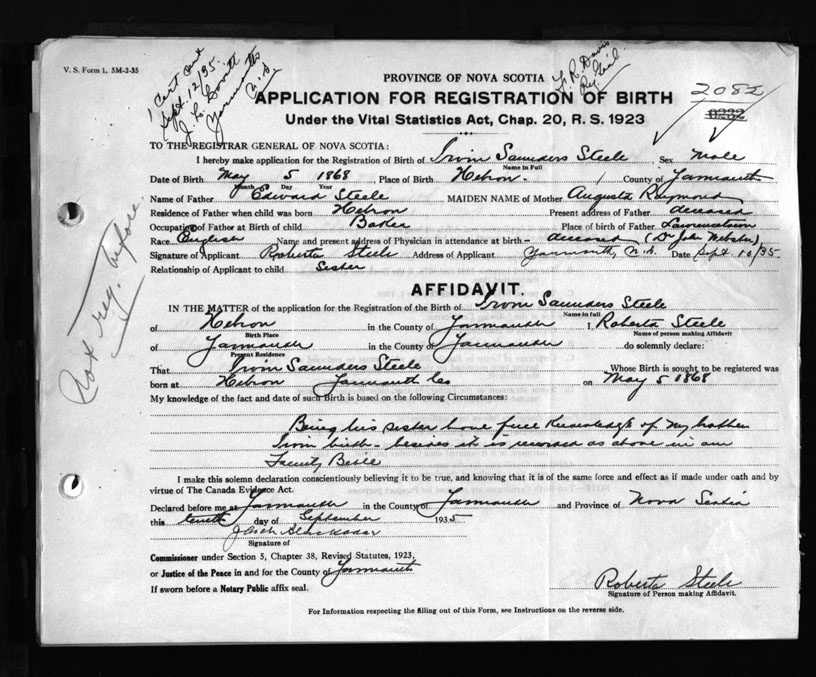 V. S. Form 1. 5M-2-35
1 Cert sent
Sept. 12/35.
J. L. Lovitt
Yarmouth
N.S.
F. R. Davis
Reg. Genl.
2082
0232
PROVINCE OF NOVA SCOTIA
APPLICATION FOR REGISTRATION OF BIRTH
Under the Vital Statistics Act, Chap. 20, R. S. 1923
TO THE REGISTRAR GENERAL OF NOVA SCOTIA:
I hereby make application for the Registration of Birth of Irvin Saunders Steele, Sex Male
Name in Full
Date of Birth May 5 1868, Place of Birth Hebron - County of Yarmouth
Month Day Year
Name of Father Edward Steele MAIDEN NAME of Mother Augusta Raymond
Residence of Father when child was born Hebron Present address of Father deceased
Occupation of Father at Birth of child Baker Place of birth of Father
Race English Name and present address of Physician in attendance at birth - deceased (Dr John Webster)
Signature of Applicant Roberta Steele Address of Applicant Yarmouth, N.S. Date Sept. 10/35
Relationship of Applicant to child Sister
Not reg. before
AFFIDAVIT.
IN THE MATTER of the application for the Registration of the Birth of Irvin Saunders Steele
Name in full
of Hebron in the County of Yarmouth I, Roberta Steele
Birth Place Name of person making Affidavit
of Yarmouth in the County of Yarmouth do solemnly declare:
Present Residence
That Irvin Saunders Steele Whose Birth is sought to be registered was
born at Hebron Yarmouth Co on May 5 1868
My knowledge of the fact and date of such Birth is based on the following Circumstances:
Being his sister have full knowledge of my brother
Irvin birth - besides it is recorded as above in our
Family Bible
I make this solemn declaration conscientiously believing it to be true, and knowing that it is of the same force and effect as if made under oath and by
virtue of The Canada Evidence Act.
Declared before me at Yarmouth in the County of Yarmouth and Province of Nova Scotia
this tenth day of September 1935
Signature of
Commissioner under Section 5, Chapter 38, Revised Statutes, 1923,
or Justice of the Peace in and for the County of Yarmouth
If sworn before a Notary Public affix seal.
Roberta Steele
Signature of Person making Affidavit.
For Information respecting the filling out of this Form, see Instructions on the reverse side.